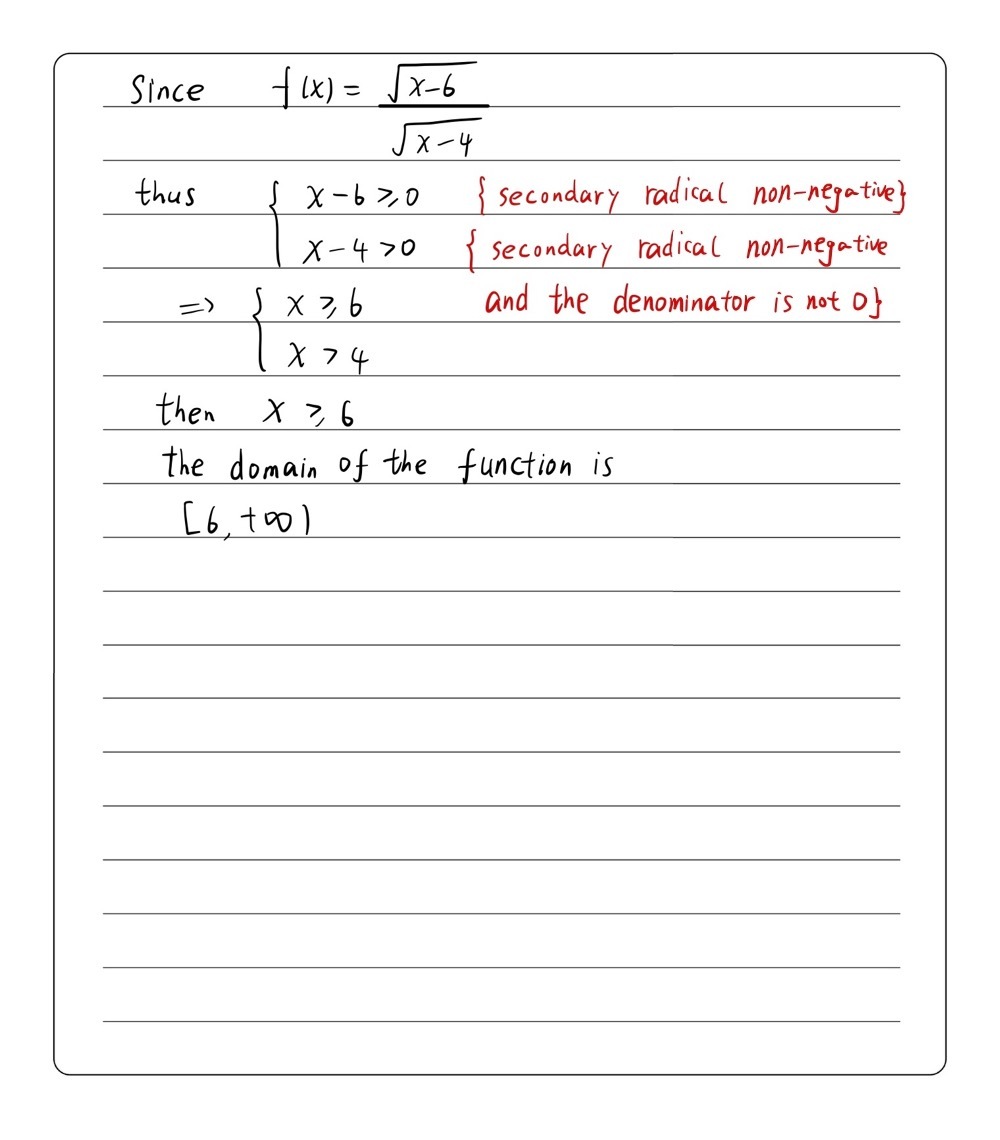 Since f(x) = √(x-6) / √(x-4)
thus { x-6 ⩾ 0 {secondary radical non-negative}
x-4 > 0 {secondary radical non-negative
⇒ { x ⩾ 6 and the denominator is not 0}
x > 4
then x ⩾ 6
the domain of the function is
[6, +∞)